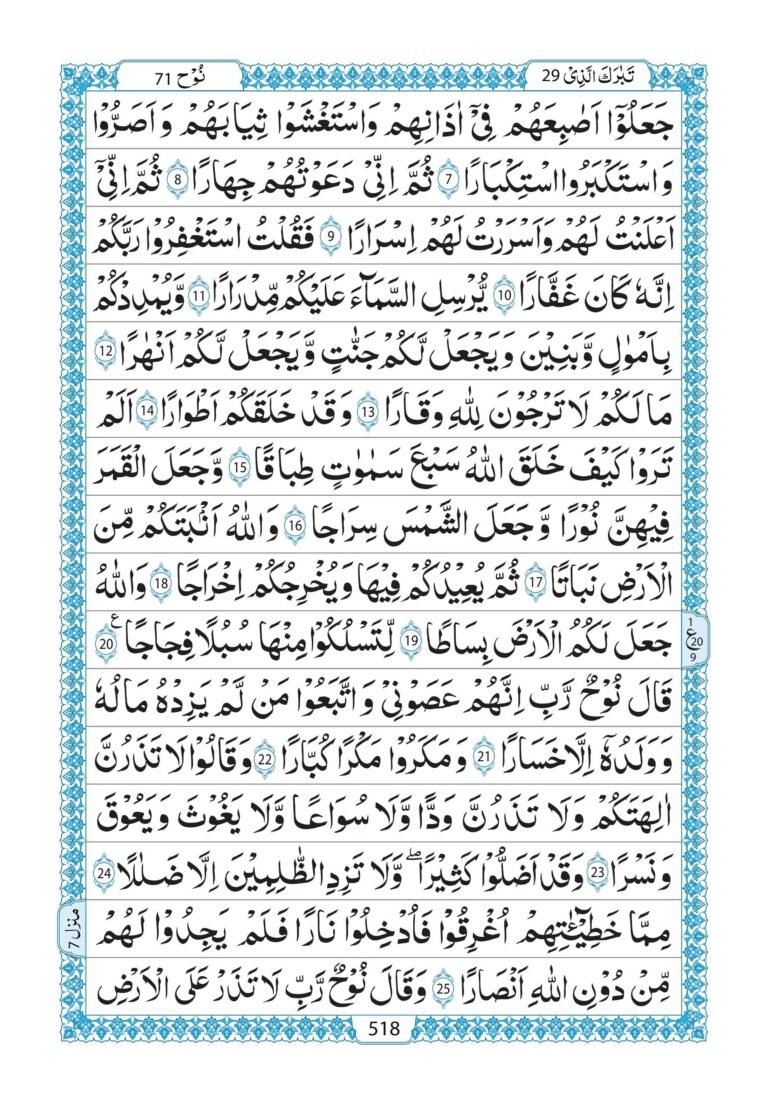 تَبٰرَكَ الَّذِىْ 29
نُوْح 71
جَعَلُوْۤا اَصَابِعَهُمْ فِىْۤ اٰذَانِهِمْ وَاسْتَغْشَوْا ثِيَابَهُمْ وَاَصَرُّوْا
وَاسْتَكْبَرُوا اسْتِكْبَارًا 7 ثُمَّ اِنِّىْ دَعَوْتُهُمْ جِهَارًا 8 ثُمَّ اِنِّىْۤ
اَعْلَنْتُ لَهُمْ وَاَسْرَرْتُ لَهُمْ اِسْرَارًا 9 فَقُلْتُ اسْتَغْفِرُوْا رَبَّكُمْ
اِنَّهٗ كَانَ غَفَّارًا 10 يُّرْسِلِ السَّمَآءَ عَلَيْكُمْ مِّدْرَارًا 11 وَّيُمْدِدْكُمْ
بِاَمْوٰلٍ وَّبَنِيْنَ وَيَجْعَلْ لَّكُمْ جَنّٰتٍ وَّيَجْعَلْ لَّكُمْ اَنْهٰرًا 12
مَا لَكُمْ لَا تَرْجُوْنَ لِلّٰهِ وَقَارًا 13 وَقَدْ خَلَقَكُمْ اَطْوَارًا 14 اَلَمْ
تَرَوْا كَيْفَ خَلَقَ اللّٰهُ سَبْعَ سَمٰوٰتٍ طِبَاقًا 15 وَّجَعَلَ الْقَمَرَ
فِيْهِنَّ نُوْرًا وَّجَعَلَ الشَّمْسَ سِرَاجًا 16 وَاللّٰهُ اَنْۢبَتَكُمْ مِّنَ
الْاَرْضِ نَبَاتًا 17 ثُمَّ يُعِيْدُكُمْ فِيْهَا وَيُخْرِجُكُمْ اِخْرَاجًا 18 وَاللّٰهُ
جَعَلَ لَكُمُ الْاَرْضَ بِسَاطًا 19 لِّتَسْلُكُوْا مِنْهَا سُبُلًا فِجَاجًا 20 ع
1
ع 20
9
قَالَ نُوْحٌ رَّبِّ اِنَّهُمْ عَصَوْنِىْ وَاتَّبَعُوْا مَنْ لَّمْ يَزِدْهُ مَالُهٗ
وَوَلَدُهٗۤ اِلَّا خَسَارًا 21 وَمَكَرُوْا مَكْرًا كُبَّارًا 22 وَقَالُوْا لَا تَذَرُنَّ
اٰلِهَتَكُمْ وَلَا تَذَرُنَّ وَدًّا وَّلَا سُوَاعًا وَّلَا يَغُوْثَ وَيَعُوْقَ
وَنَسْرًا 23 وَقَدْ اَضَلُّوْا كَثِيْرًا ۖ وَّلَا تَزِدِ الظّٰلِمِيْنَ اِلَّا ضَلٰلًا 24
مِمَّا خَطِيْٓـئٰتِهِمْ اُغْرِقُوْا فَاُدْخِلُوْا نَارًا فَلَمْ يَجِدُوْا لَهُمْ
منزل 7
مِّنْ دُوْنِ اللّٰهِ اَنْصَارًا 25 وَقَالَ نُوْحٌ رَّبِّ لَا تَذَرْ عَلَى الْاَرْضِ
518